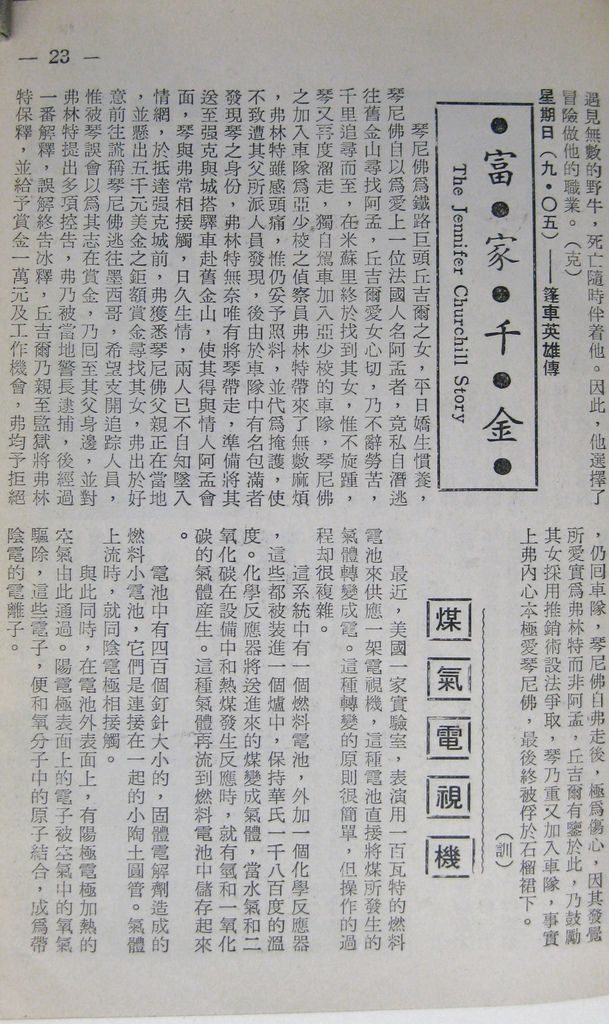 — 23 —
遇見無數的野牛，死亡隨時伴着他。因此，他選擇了
冒險做他的職業。（克）
星期日（九·〇五）——篷車英雄傳
●富●家●千●金●
The Jennifer Churchill Story
琴尼佛爲鐵路巨頭丘吉爾之女，平日嬌生慣養，
琴尼佛自以爲愛上一位法國人名阿孟者，竟私自潛逃
往舊金山尋找阿孟，丘吉爾愛女心切，乃不辭勞苦，
千里追尋而至，在米蘇里終於找到其女，惟不旋踵，
琴又再度溜走，獨自駕車加入亞少校的車隊，琴尼佛
之加入車隊爲亞少校之偵察員弗林特帶來了無數麻煩
，弗林特雖感頭痛，惟仍妥予照料，並代爲掩護，使
不致遭其父所派人員發現，後由於車隊中有名包滿者
發現琴之身份，弗林特無奈唯有將琴帶走，準備將其
送至强克與城搭驛車赴舊金山，使其得與情人阿孟會
面，琴與弗常相接觸，日久生情，兩人已不自知墜入
情網，於抵達强克城前，弗獲悉琴尼佛父親正在當地
，並懸出五千元美金之鉅額賞金尋找其女，弗出於好
意前往謊稱琴尼佛逃往墨西哥，希望支開追踪人員，
惟被琴誤會以爲其志在賞金，乃囘至其父身邊，並對
弗林特提出多項控告，弗乃被當地警長逮捕，後經過
一番解釋，誤解終告冰釋，丘吉爾乃親至監獄將弗林
特保釋，並給予賞金一萬元及工作機會，弗均予拒絕
，仍囘車隊，琴尼佛自弗走後，極爲傷心，因其發覺
所愛實爲弗林特而非阿孟，丘吉爾有鑒於此，乃鼓勵
其女採用推銷術設法爭取，琴乃重又加入車隊，事實
上弗內心本極愛琴尼佛，最後終被俘於石榴裙下。
（訓）
煤氣電視機
最近，美國一家實驗室，表演用一百瓦特的燃料
電池來供應一架電視機，這種電池直接將煤所發生的
氣體轉變成電。這種轉變的原則很簡單，但操作的過
程却很複雜。
這系統中有一個燃料電池，外加一個化學反應器
，這些都被裝進一個爐中，保持華氏一千八百度的溫
度。化學反應器將送進來的煤變成氣體，當水氣和二
氧化碳在設備中和熱煤發生反應時，就有氫和一氧化
碳的氣體產生。這種氣體再流到燃料電池中儲存起來
。
電池中有四百個釘針大小的，固體電解劑造成的
燃料小電池，它們是連接在一起的小陶土圓管。氣體
上流時，就同陰電極相接觸。
與此同時，在電池外表面上，有陽電極電極加熱的
空氣由此通過。陽電極表面上的電子被空氣中的氧氣
驅除，這些電子，便和氧分子中的原子結合，成爲帶
陰電的電離子。